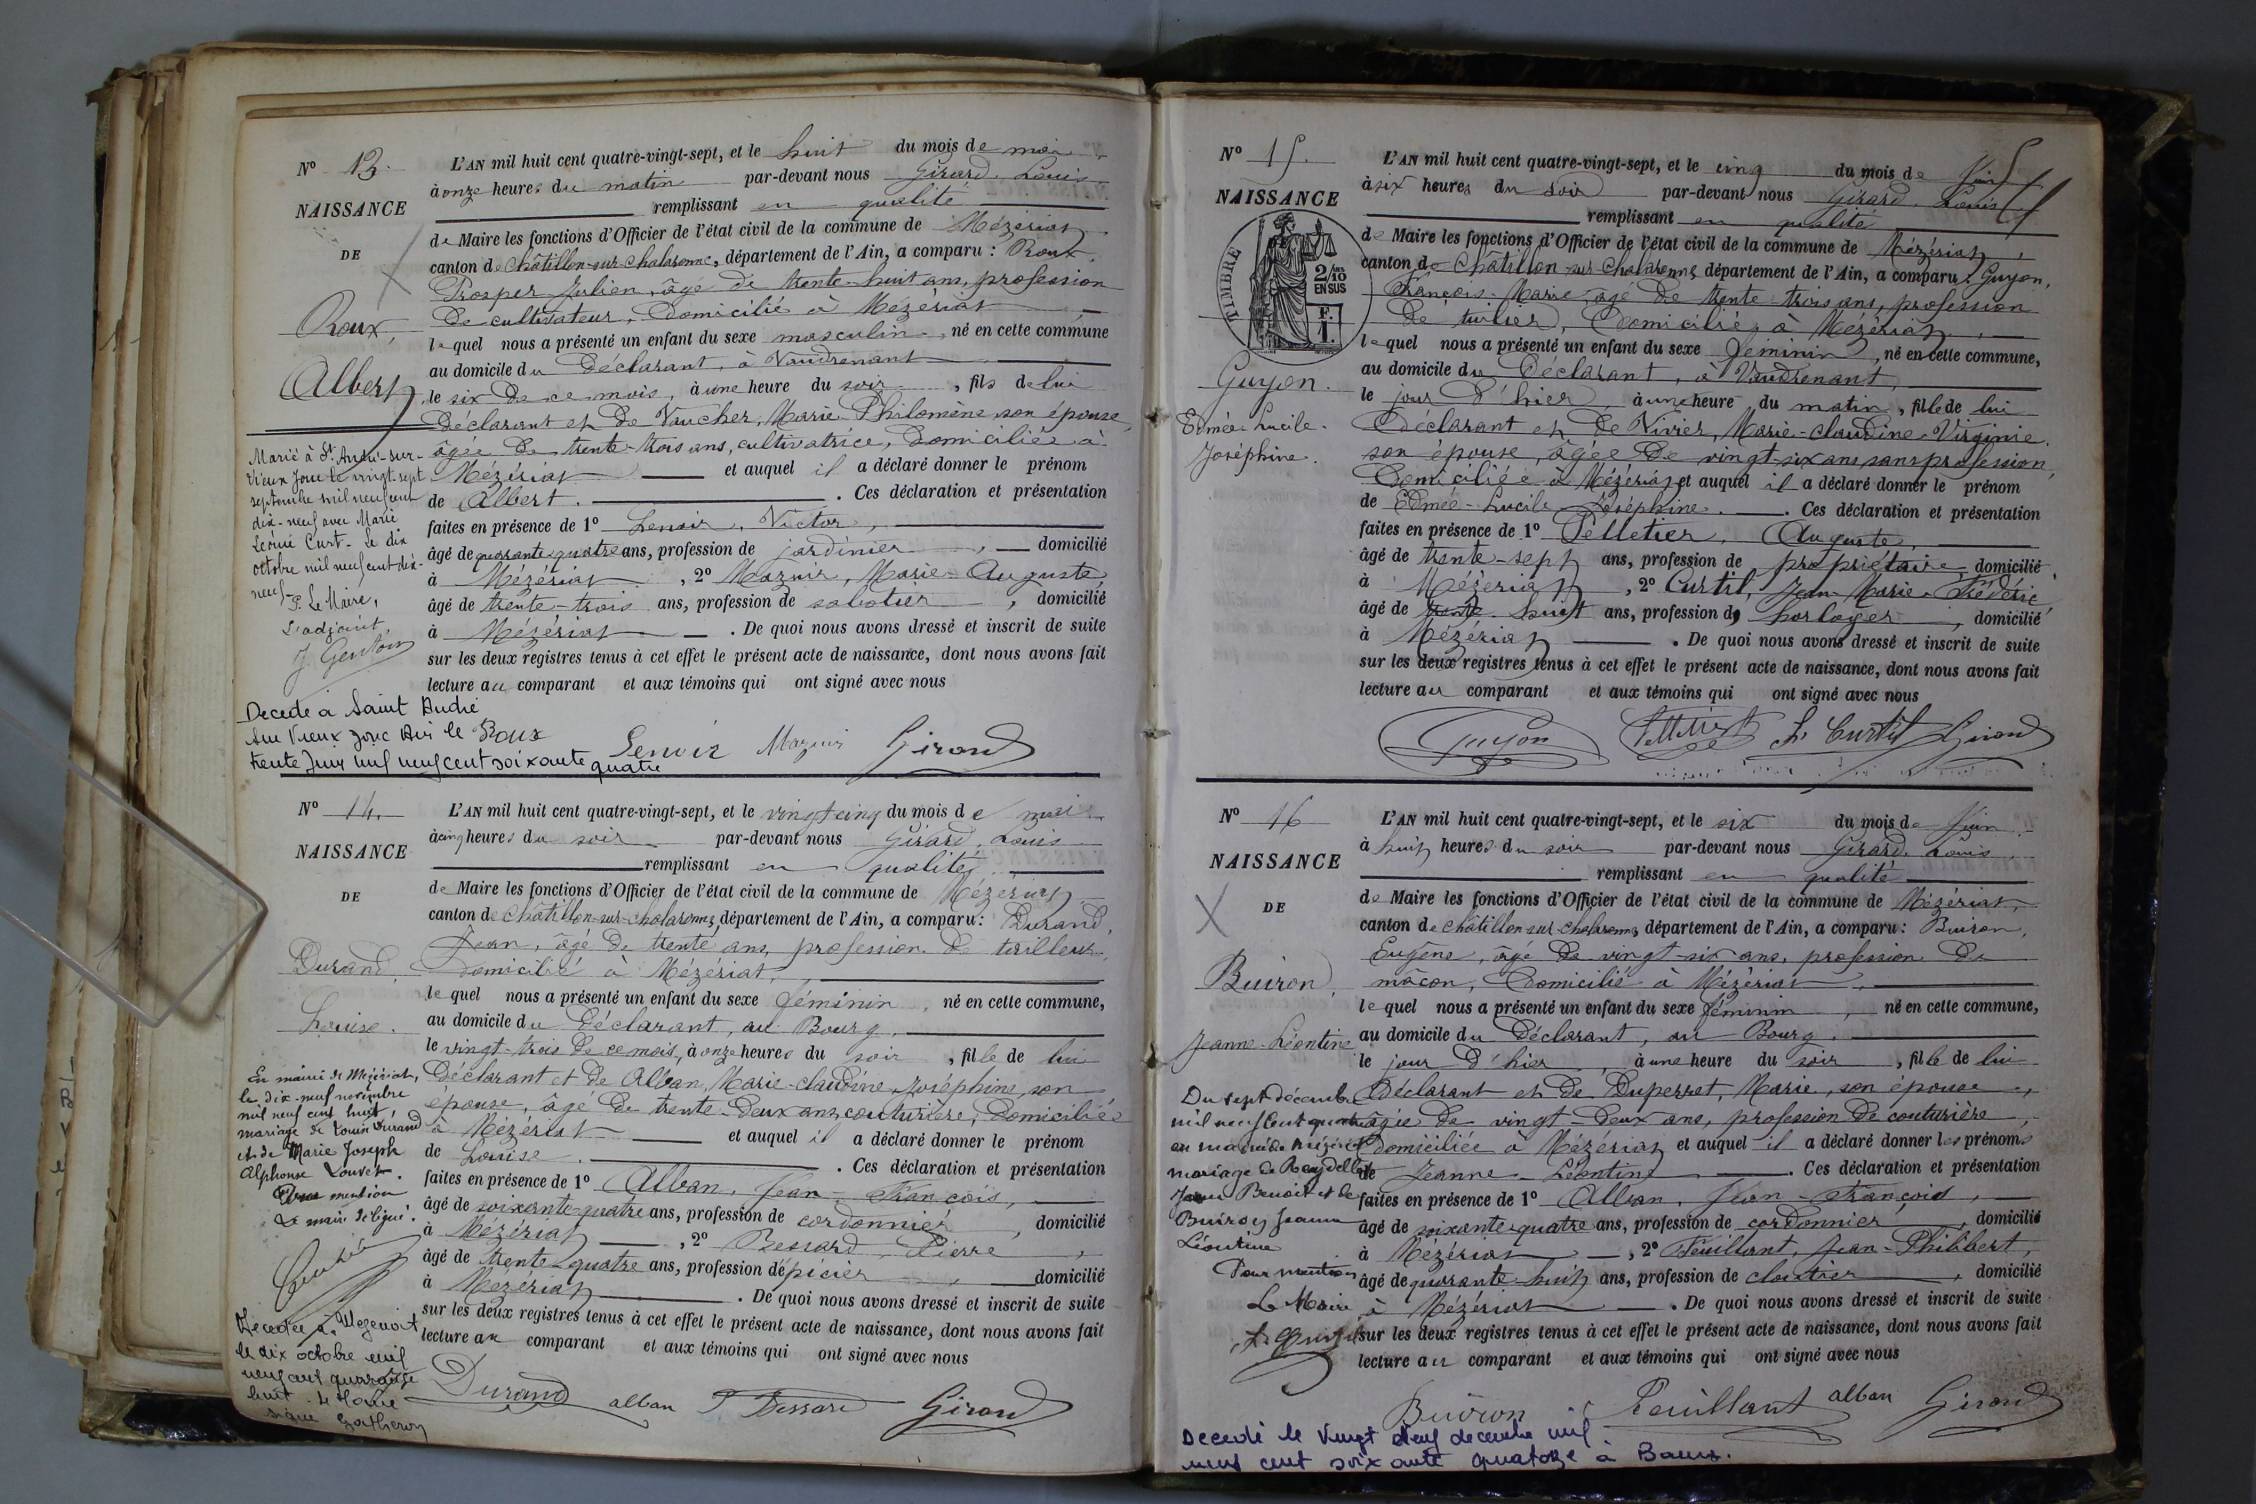 N° 13.
NAISSANCE
DE
Roux,
Albert
L'AN mil huit cent quatre-vingt-sept, et le huit du mois de mai
à onze heures du matin par-devant nous Girard, Louis
remplissant en qualité
de Maire les fonctions d'Officier de l'état civil de la commune de Mézériat,
canton de Châtillon-sur-Chalaronne, département de l'Ain, a comparu : Roux,
Prosper Julien, âgé de trente-huit ans, profession
de cultivateur, domicilié à Mézériat
lequel nous a présenté un enfant du sexe masculin, né en cette commune
au domicile du déclarant, à Vaudrenant
le six de ce mois, à une heure du soir, fils de lui
déclarant et de Vaucher, Marie Philomène son épouse,
âgée de trente-trois ans, cultivatrice, domiciliée à
Mézériat et auquel il a déclaré donner le prénom
de Albert. Ces déclaration et présentation
faites en présence de 1° Lenoir, Victor,
âgé de quarante-quatre ans, profession de jardinier, domicilié
à Mézériat, 2° Maznir, Marie-Auguste,
âgé de trente-trois ans, profession de sabotier, domicilié
à Mézériat. De quoi nous avons dressé et inscrit de suite
sur les deux registres tenus à cet effet le présent acte de naissance, dont nous avons fait
lecture au comparant et aux témoins qui ont signé avec nous
Marié à St André-sur-
Vieux Jonc le vingt-sept
septembre mil neuf cent
dix-neuf avec Marie
Curt. Le dix
octobre mil neuf cent dix-
neuf.
P. Le Maire,
L'adjoint
Décédé à Saint André
sur Vieux Jonc le
trente Juin mil neuf cent soixante quatre
Roux Lenoir Maznir Girard
N° 14.
NAISSANCE
DE
Durand,
Louise.
L'AN mil huit cent quatre-vingt-sept, et le vingt cinq du mois de mai
à cinq heures du soir par-devant nous Girard, Louis
remplissant en qualité
de Maire les fonctions d'Officier de l'état civil de la commune de Mézériat
canton de Châtillon-sur-Chalaronne, département de l'Ain, a comparu : Durand,
Jean, âgé de trente ans, profession de tailleur,
domicilié à Mézériat,
lequel nous a présenté un enfant du sexe féminin, né en cette commune,
au domicile du déclarant, au Bourg,
le vingt-trois de ce mois, à onze heures du soir, fille de lui
déclarant et de Alban, Marie-Claudine Joséphine, son
épouse, âgé de trente-deux ans, couturière, domiciliée
à Mézériat et auquel il a déclaré donner le prénom
de Louise. Ces déclaration et présentation
faites en présence de 1° Alban, Jean-François,
âgé de soixante-quatre ans, profession de cordonnier, domicilié
à Mézériat, 2° Bessard, Pierre,
âgé de trente-quatre ans, profession d'épicier, domicilié
à Mézériat. De quoi nous avons dressé et inscrit de suite
sur les deux registres tenus à cet effet le présent acte de naissance, dont nous avons fait
lecture au comparant et aux témoins qui ont signé avec nous
En mairie de Mézériat,
le dix-neuf novembre
mil neuf cent huit,
mariage de Louise Durand
et de Marie Joseph
Alphonse Louvet.
Pour mention
Le maire délégué.
Décédée à
le dix octobre mil
neuf cent quarante
huit. Le Maire
signé
Durand alban P Bessard Girard
N° 15.
NAISSANCE
TIMBRE
2/10
EN SUS
F.
1.
Guyon.
Edmée-Lucile-
Joséphine.
L'AN mil huit cent quatre-vingt-sept, et le cinq du mois de Juin
à six heures du soir par-devant nous Girard, Louis
remplissant en qualité
de Maire les fonctions d'Officier de l'état civil de la commune de Mézériat,
canton de Châtillon-sur-Chalaronne, département de l'Ain, a comparu : Guyon,
François-Marie, âgé de trente-trois ans, profession
de tuilier, domicilié à Mézériat,
lequel nous a présenté un enfant du sexe féminin, né en cette commune,
au domicile du déclarant, à Vaudrenant,
le jour d'hier, à une heure du matin, fille de lui
déclarant et de Vivier, Marie-Claudine-Virginie,
son épouse, âgée de vingt-six ans, sans profession,
domiciliée à Mézériat et auquel il a déclaré donner le prénom
de Edmée-Lucile-Joséphine. Ces déclaration et présentation
faites en présence de 1° Pelletier, Auguste,
âgé de trente-sept ans, profession de propriétaire, domicilié
à Mézériat, 2° Curtil, Jean-Marie-Frédéric
âgé de trente-huit ans, profession d'horloger, domicilié
à Mézériat. De quoi nous avons dressé et inscrit de suite
sur les deux registres tenus à cet effet le présent acte de naissance, dont nous avons fait
lecture au comparant et aux témoins qui ont signé avec nous
Guyon Curtil Girard
N° 16
NAISSANCE
DE
Buiron,
Jeanne-Léontine
L'AN mil huit cent quatre-vingt-sept, et le six du mois de Juin
à huit heures du soir par-devant nous Girard, Louis,
remplissant en qualité
de Maire les fonctions d'Officier de l'état civil de la commune de Mézériat,
canton de Châtillon-sur-Chalaronne, département de l'Ain, a comparu : Buiron,
Eugène, âgé de vingt-six ans, profession de
mâcon, domicilié à Mézériat,
lequel nous a présenté un enfant du sexe féminin, né en cette commune,
au domicile du déclarant, au Bourg,
le jour d'hier à une heure du soir, fille de lui
déclarant et de Duperret, Marie, son épouse,
âgée de vingt-deux ans, profession de couturière,
domiciliée à Mézériat et auquel il a déclaré donner les prénoms
de Jeanne-Léontine. Ces déclaration et présentation
faites en présence de 1° Alban, Jean-François,
âgé de soixante-quatre ans, profession de cordonnier, domicilié
à Mézériat, 2° Feuillant, Jean-Philibert,
âgé de quarante-huit ans, profession de cloutier, domicilié
à Mézériat. De quoi nous avons dressé et inscrit de suite
sur les deux registres tenus à cet effet le présent acte de naissance, dont nous avons fait
lecture au comparant et aux témoins qui ont signé avec nous
Du sept décembre
mil neuf cent
en mairie de Mézériat
mariage de Reydellet
Benoit et de
Buiron Jeanne
Léontine
Pour mention
Le Maire
Buiron Feuillant alban Girard
Decedé le vingt neuf decembre mil
neuf cent soixante quatorze à